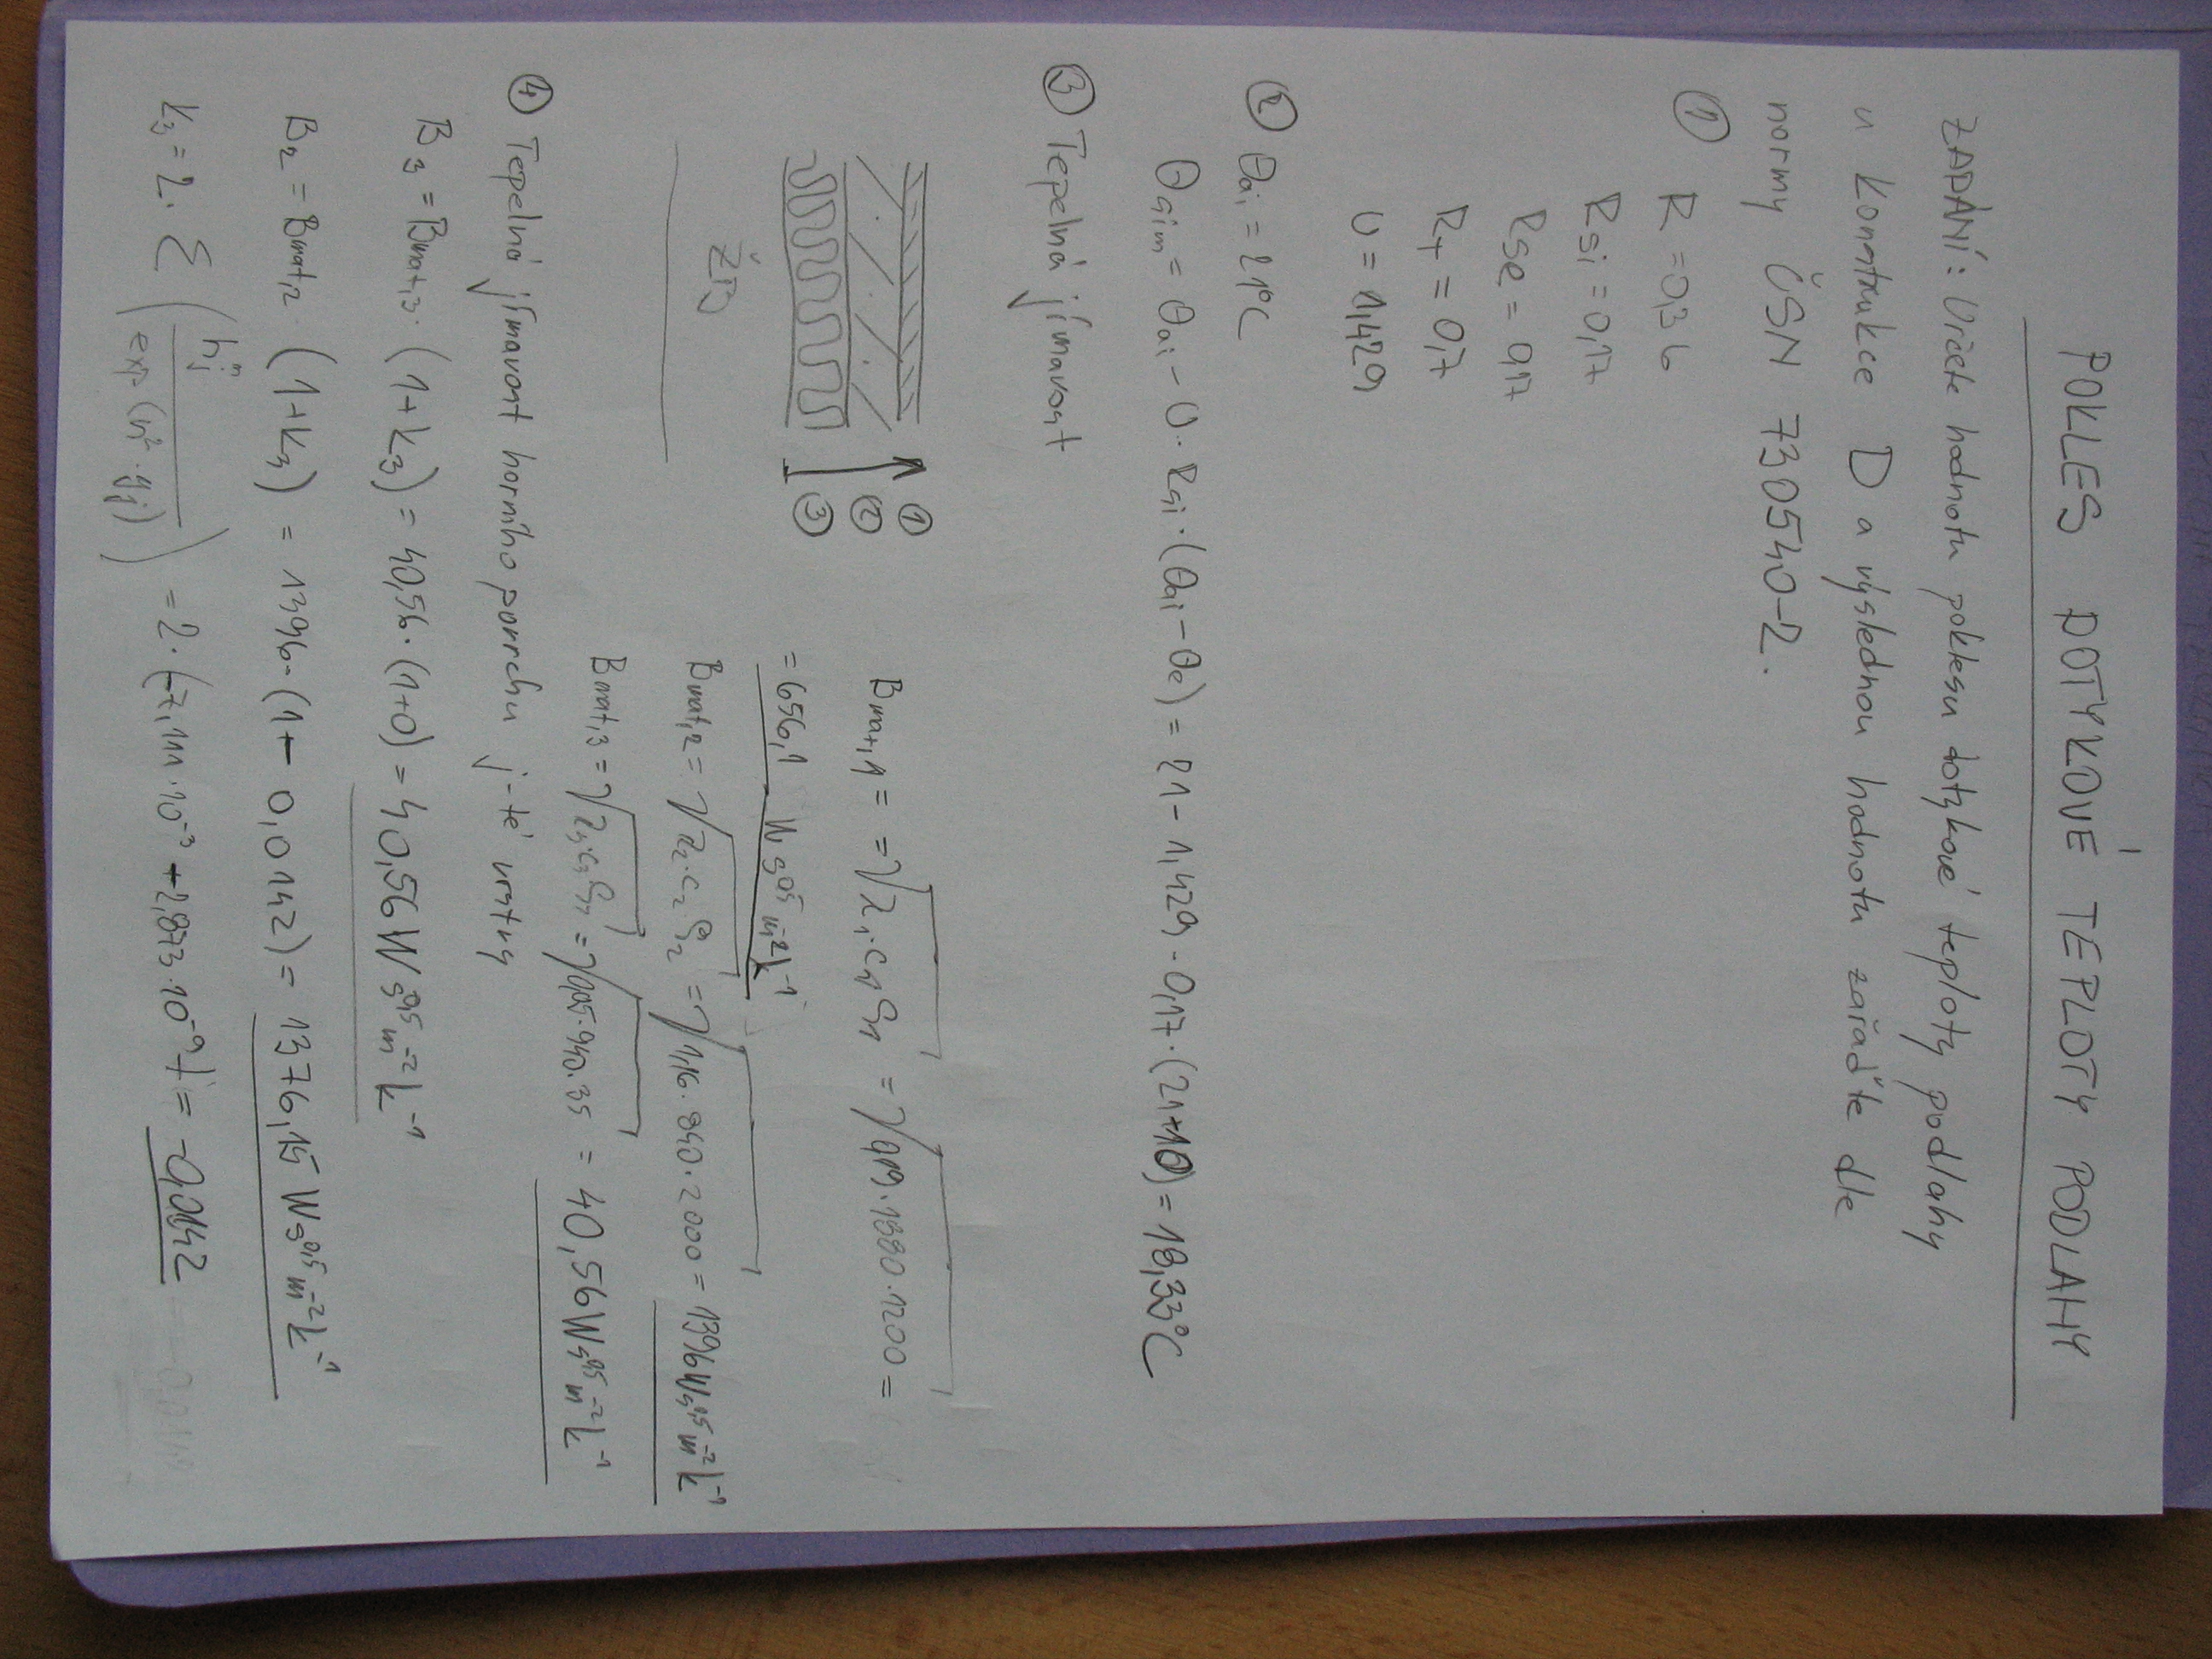 POKLES DOTYKOVÉ TEPLOTY PODLAHY
ZADÁNÍ: Určete hodnotu poklesu dotykové teploty podlahy
u konstrukce D a výslednou hodnotu zařaďte dle
normy ČSN 730540-2.
① R = 0,36
Rsi = 0,17
Rse = 0,17
RT = 0,7
U = 1,429
② θai = 21°C
θsim = θai - U · Rsi · (θai - θe) = 21 - 1,429 · 0,17 · (21+10) = 18,33°C
③ Tepelná jímavost
① ② ③
ŽB
Bmat,1 = √λ1·c1·ρ1 = √0,19·1880·1200 =
= 656,1 W s^0,5 m^-2 K^-1
Bmat,2 = √λ2·c2·ρ2 = √1,16·840·2000 = 1396 W s^0,5 m^-2 K^-1
Bmat,3 = √λ3·c3·ρ3 = √0,05·940·35 = 40,56 W s^0,5 m^-2 K^-1
④ Tepelná jímavost horního povrchu j-té vrstvy
B3 = Bmat,3 · (1+k3) = 40,56 · (1+0) = 40,56 W s^0,5 m^-2 K^-1
B2 = Bmat,2 · (1+k3) = 1396 · (1 - 0,0142) = 1376,15 W s^0,5 m^-2 K^-1
k3 = 2 · Σ (hj^n / exp (n²·yj)) = 2 · (-7,111·10^-3 + 2,873·10^-9) = -0,0142